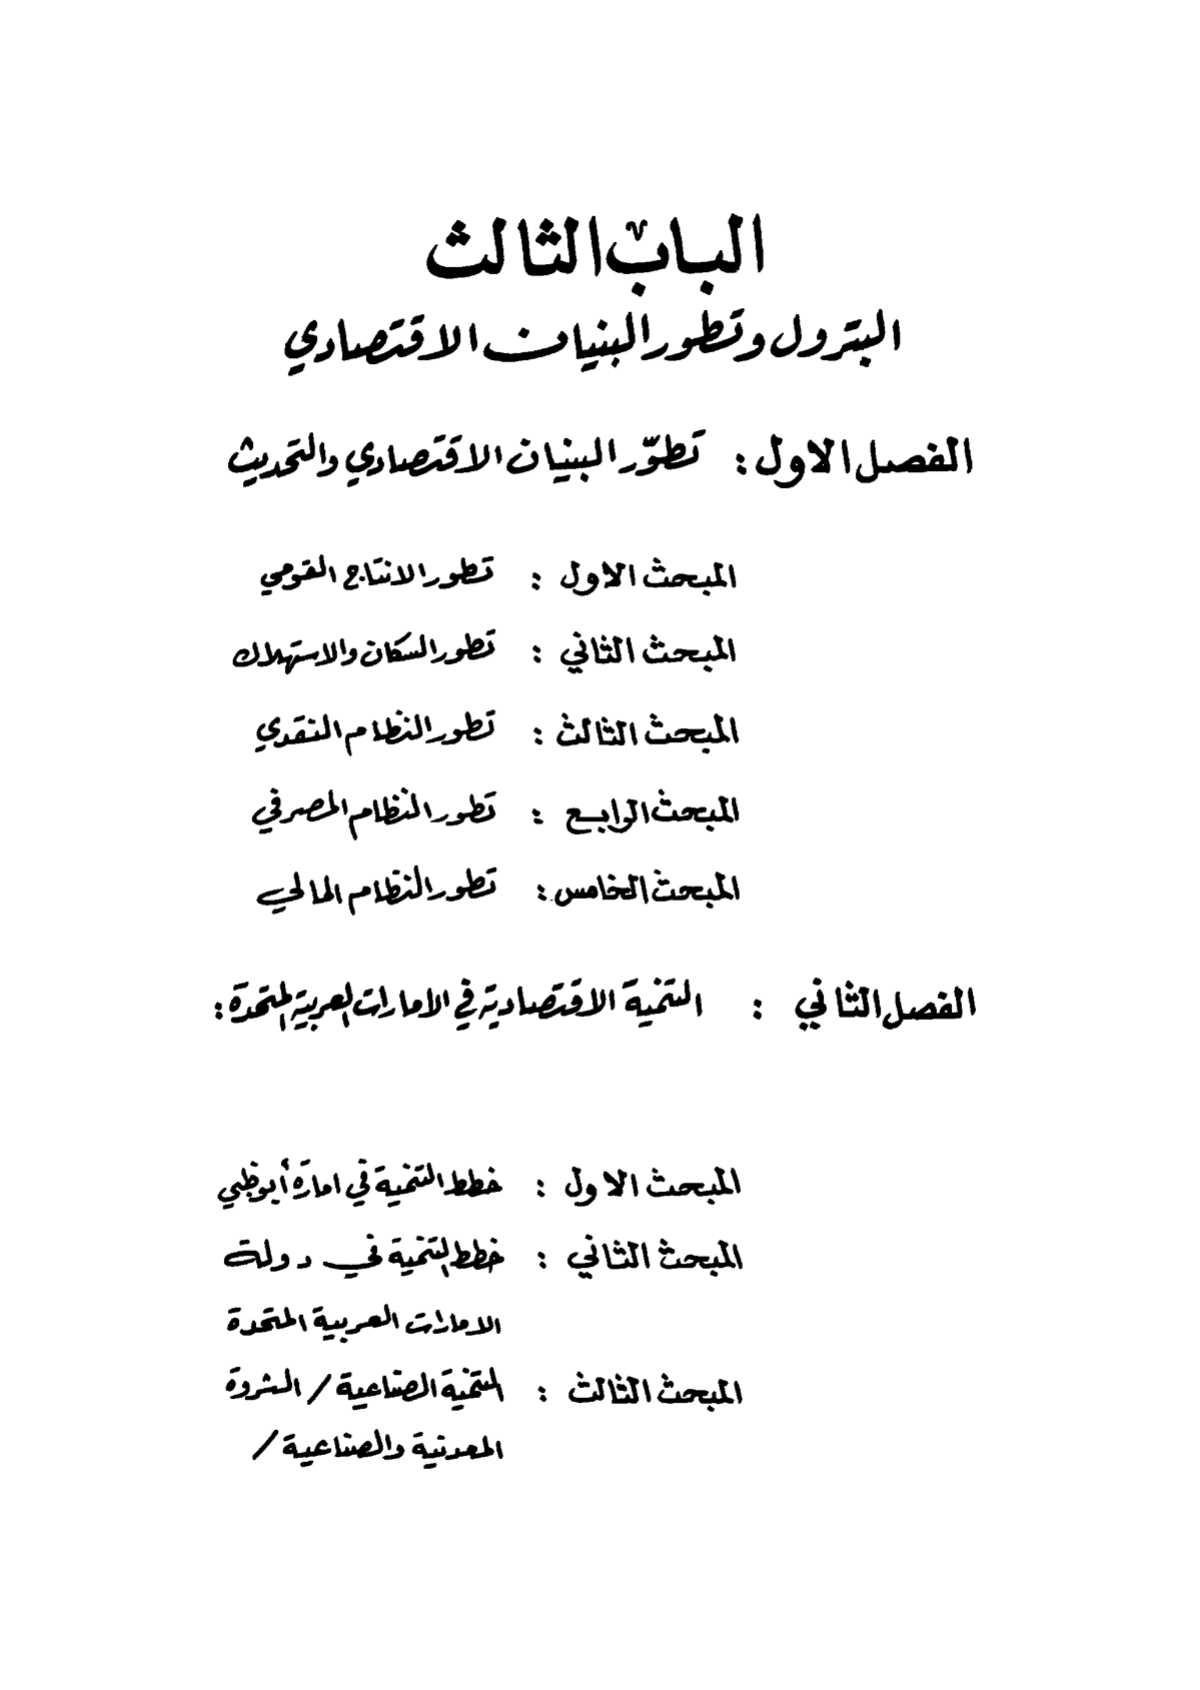 الباب الثالث
البترول وتطور البنيان الاقتصادي
الفصل الاول : تطوّر البنيان الاقتصادي والتحديث
المبحث الاول : تطور الانتاج القومي
المبحث الثاني : تطور السكان والاستهلاك
المبحث الثالث : تطور النظام النقدي
المبحث الرابع : تطور النظام المصرفي
المبحث الخامس : تطور النظام المالي
الفصل الثاني : التنمية الاقتصادية في الامارات العربية المتحدة :
المبحث الاول : خطط التنمية في امارة أبوظبي
المبحث الثاني : خطط التنمية في دولة
الامارات العربية المتحدة
المبحث الثالث : التنمية الصناعية / الثروة
المعدنية والصناعية /